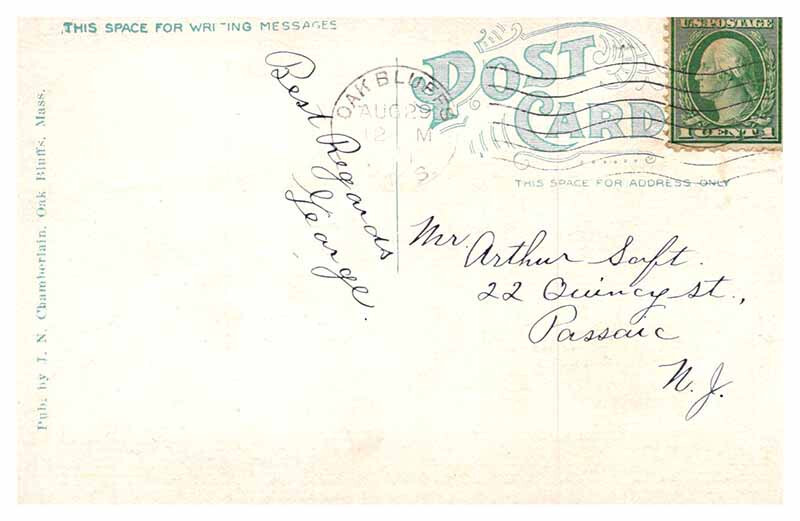 THIS SPACE FOR WRITING MESSAGES
POST
CARD
U.S. POSTAGE
1 CENT 1
OAK BLUFFS
AUG 29
12 M
S.
THIS SPACE FOR ADDRESS ONLY
Best Regards
George.
Mr. Arthur Saft.
22 Quincy st.,
Passaic
N. J.
Pub. by J. N. Chamberlain, Oak Bluffs, Mass.